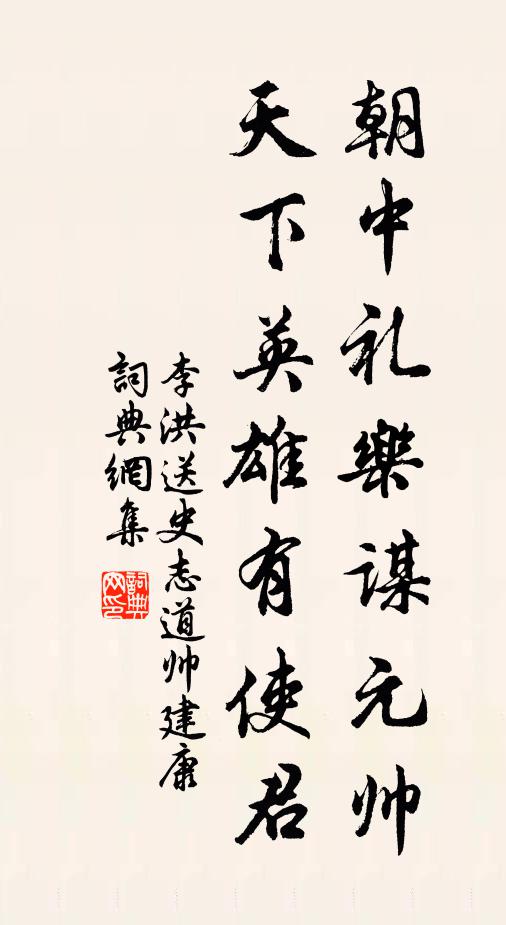 朝中礼樂謀元帅
天下英雄有使君
李洪送史志道帅建康
詞典網集
詞典
网印